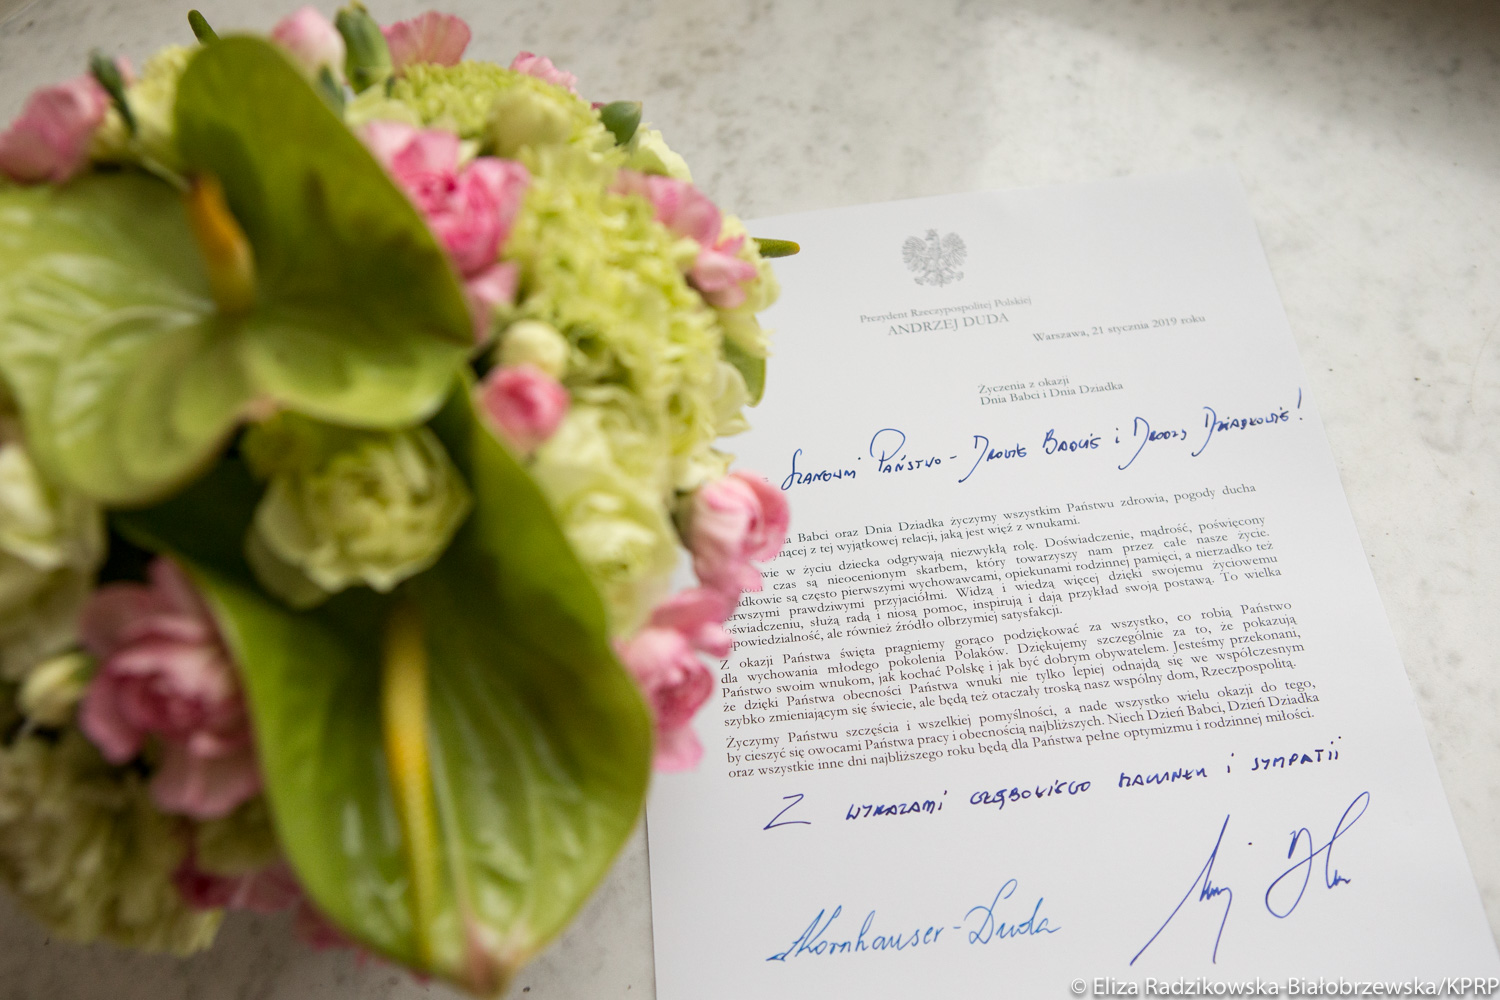 Prezydent Rzeczypospolitej Polskiej
ANDRZEJ DUDA
Warszawa, 21 stycznia 2019 roku
Życzenia z okazji
Dnia Babci i Dnia Dziadka
Szanowni Państwo - Drogie Babcie i Drodzy Dziadkowie!
Babci oraz Dnia Dziadka życzymy wszystkim Państwu zdrowia, pogody ducha
z tej wyjątkowej relacji, jaką jest więź z wnukami.
w życiu dziecka odgrywają niezwykłą rolę. Doświadczenie, mądrość, poświęcony
czas są nieocenionym skarbem, który towarzyszy nam przez całe nasze życie.
są często pierwszymi wychowawcami, opiekunami rodzinnej pamięci, a nierzadko też
pierwszymi prawdziwymi przyjaciółmi. Widzą i wiedzą więcej dzięki swojemu życiowemu
doświadczeniu, służą radą i niosą pomoc, inspirują i dają przykład swoją postawą. To wielka
odpowiedzialność, ale również źródło olbrzymiej satysfakcji.
Z okazji Państwa święta pragniemy gorąco podziękować za wszystko, co robią Państwo
dla wychowania młodego pokolenia Polaków. Dziękujemy szczególnie za to, że pokazują
Państwo swoim wnukom, jak kochać Polskę i jak być dobrym obywatelem. Jesteśmy przekonani,
że dzięki Państwa obecności Państwa wnuki nie tylko lepiej odnajdą się we współczesnym
szybko zmieniającym się świecie, ale będą też otaczały troską nasz wspólny dom, Rzeczpospolitą.
Życzymy Państwu szczęścia i wszelkiej pomyślności, a nade wszystko wielu okazji do tego,
by cieszyć się owocami Państwa pracy i obecnością najbliższych. Niech Dzień Babci, Dzień Dziadka
oraz wszystkie inne dni najbliższego roku będą dla Państwa pełne optymizmu i rodzinnej miłości.
Z wyrazami głębokiego szacunku i sympatii
AKornhauser-Duda
© Eliza Radzikowska-Białobrzewska/KPRP